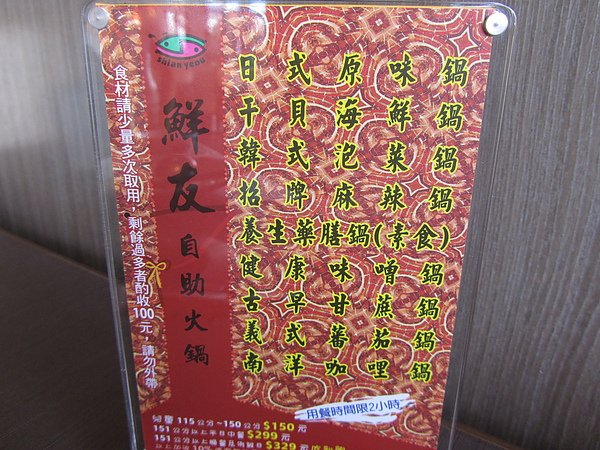 鮮友
自助火鍋
食材請少量多次取用，剩餘過多者酌收100元，請勿外帶
日式原味鍋
干貝海鮮鍋
韓式泡菜鍋
招牌麻辣鍋
養生藥膳鍋(素食)
健康味噌鍋
古早甘蔗鍋
義式蕃茄鍋
南洋咖哩鍋
用餐時間限2小時
兒童 115公分~150公分 $150元
151公分以上平日中餐 $299元
151公分以上晚餐及例假日 $329元